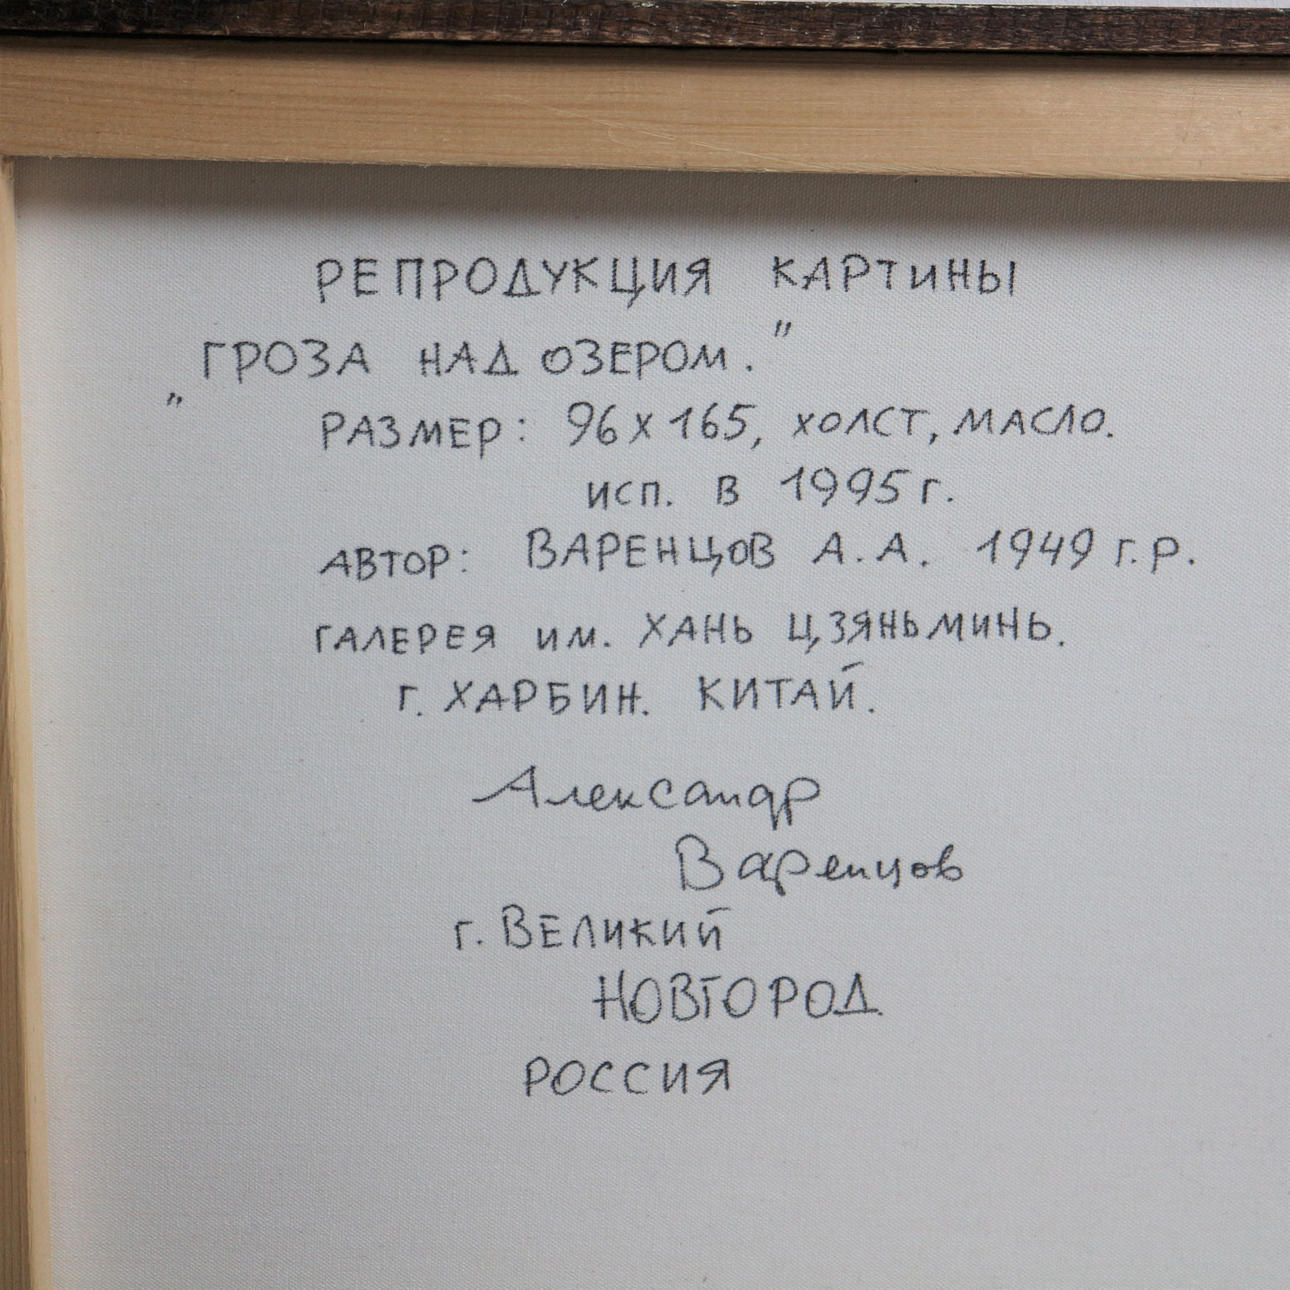 РЕПРОДУКЦИЯ КАРТИНЫ
„ГРОЗА НАД ОЗЕРОМ."
РАЗМЕР: 96 х 165, ХОЛСТ, МАСЛО.
ИСП. В 1995 г.
АВТОР: ВАРЕНЦОВ А.А. 1949 г.р.
ГАЛЕРЕЯ ИМ. ХАНЬ ЦЗЯНЬМИНЬ.
г. ХАРБИН. КИТАЙ.
Александр
Варенцов
г. ВЕЛИКИЙ
НОВГОРОД.
РОССИЯ